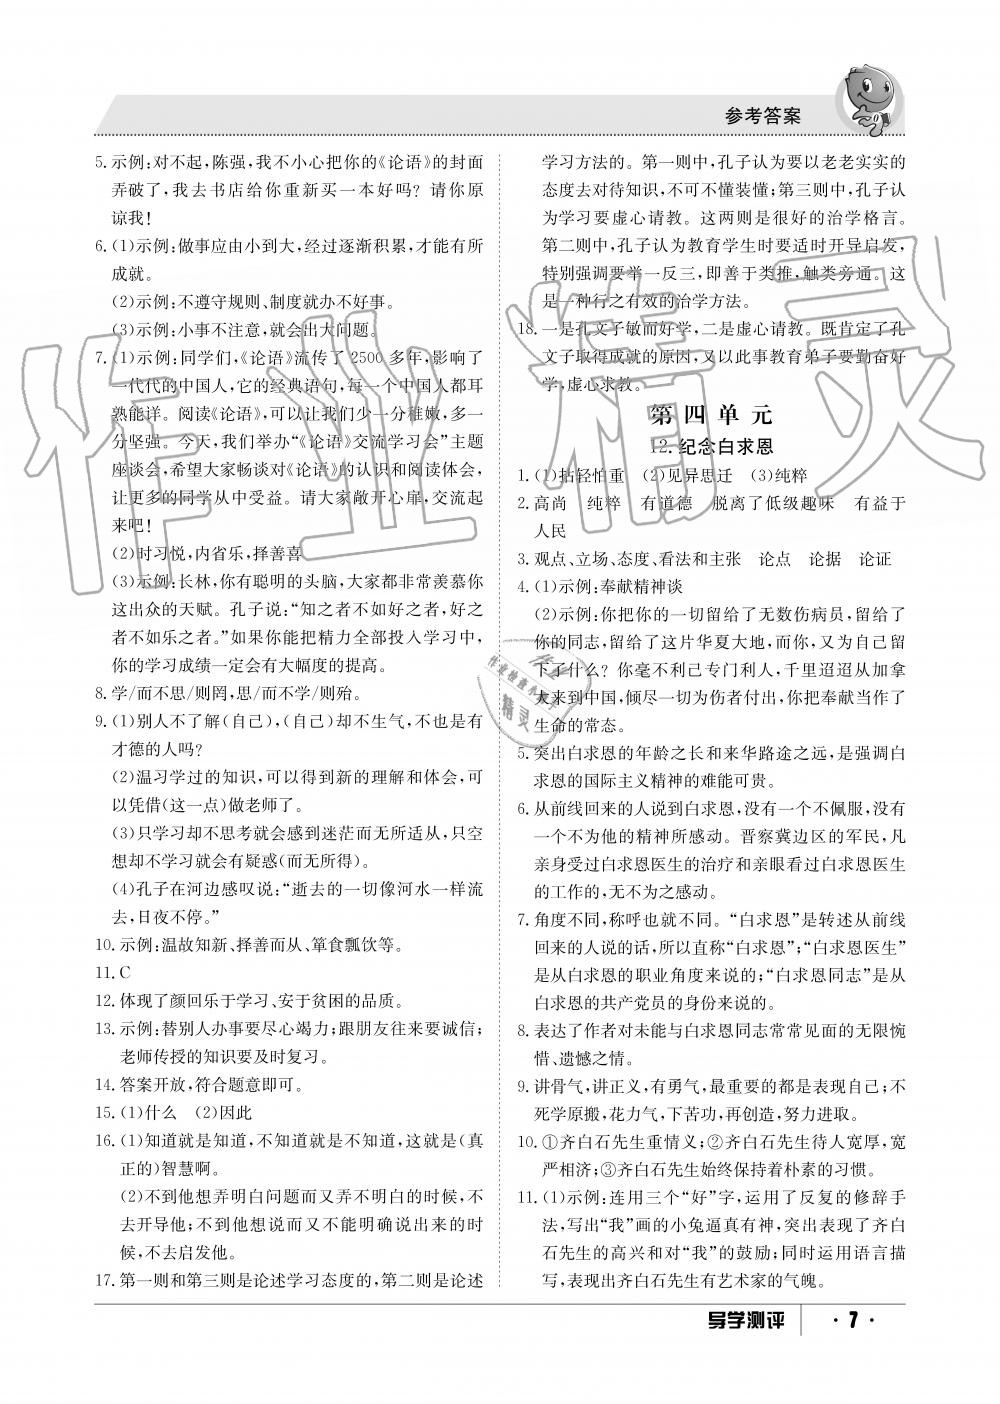 参考答案
5. 示例:对不起,陈强,我不小心把你的《论语》的封面
弄破了,我去书店给你重新买一本好吗? 请你原
谅我!
6. (1)示例:做事应由小到大,经过逐渐积累,才能有所
成就。
(2)示例:不遵守规则、制度就办不好事。
(3)示例:小事不注意,就会出大问题。
7. (1)示例:同学们,《论语》流传了 2500 多年,影响了
一代代的中国人,它的经典语句,每一个中国人都耳
熟能详。阅读《论语》,可以让我们少一分稚嫩,多一
分坚强。今天,我们举办“《论语》交流学习会”主题
座谈会,希望大家畅谈对《论语》的认识和阅读体会,
让更多的同学从中受益。请大家敞开心扉,交流起
来吧!
(2)时习悦,内省乐,择善喜
(3)示例:长林,你有聪明的头脑,大家都非常羡慕你
这出众的天赋。孔子说:“知之者不如好之者,好之
者不如乐之者。”如果你能把精力全部投入学习中,
你的学习成绩一定会有大幅度的提高。
8. 学/而不思/则罔,思/而不学/则殆。
9. (1)别人不了解(自己),(自己)却不生气,不也是有
才德的人吗?
(2)温习学过的知识,可以得到新的理解和体会,可
以凭借(这一点)做老师了。
(3)只学习却不思考就会感到迷茫而无所适从,只空
想却不学习就会有疑惑(而无所得)。
(4)孔子在河边感叹说:“逝去的一切像河水一样流
去,日夜不停。”
10. 示例:温故知新、择善而从、箪食瓢饮等。
11. C
12. 体现了颜回乐于学习、安于贫困的品质。
13. 示例:替别人办事要尽心竭力;跟朋友往来要诚信;
老师传授的知识要及时复习。
14. 答案开放,符合题意即可。
15. (1)什么 (2)因此
16. (1)知道就是知道,不知道就是不知道,这就是(真
正的)智慧啊。
(2)不到他想弄明白问题而又弄不明白的时候,不
去开导他;不到他想说而又不能明确说出来的时
候,不去启发他。
17. 第一则和第三则是论述学习态度的,第二则是论述
学习方法的。第一则中,孔子认为要以老老实实的
态度去对待知识,不可不懂装懂;第三则中,孔子认
为学习要虚心请教。这两则是很好的治学格言。
第二则中,孔子认为教育学生时要适时开导启发,
特别强调要举一反三,即善于类推,触类旁通。这
是一种行之有效的治学方法。
18. 一是孔文子敏而好学,二是虚心请教。既肯定了孔
文子取得成就的原因,又以此事教育弟子要勤奋好
学,虚心求教。
第四单元
12. 纪念白求恩
1. (1)拈轻怕重 (2)见异思迁 (3)纯粹
2. 高尚 纯粹 有道德 脱离了低级趣味 有益于
人民
3. 观点、立场、态度、看法和主张 论点 论据 论证
4. (1)示例:奉献精神谈
(2)示例:你把你的一切留给了无数伤病员,留给了
你的同志,留给了这片华夏大地,而你,又为自己留
下了什么? 你毫不利己专门利人,千里迢迢从加拿
大来到中国,倾尽一切为伤者付出,你把奉献当作了
生命的常态。
5. 突出白求恩的年龄之长和来华路途之远,是强调白
求恩的国际主义精神的难能可贵。
6. 从前线回来的人说到白求恩,没有一个不佩服,没有
一个不为他的精神所感动。晋察冀边区的军民,凡
亲身受过白求恩医生的治疗和亲眼看过白求恩医生
的工作的,无不为之感动。
7. 角度不同,称呼也就不同。“白求恩”是转述从前线
回来的人说的话,所以直称“白求恩”;“白求恩医生”
是从白求恩的职业角度来说的;“白求恩同志”是从
白求恩的共产党员的身份来说的。
8. 表达了作者对未能与白求恩同志常常见面的无限惋
惜、遗憾之情。
9. 讲骨气,讲正义,有勇气,最重要的都是表现自己;不
死学原搬,花力气,下苦功,再创造,努力进取。
10. ①齐白石先生重情义;②齐白石先生待人宽厚,宽
严相济;③齐白石先生始终保持着朴素的习惯。
11. (1)示例:连用三个“好”字,运用了反复的修辞手
法,写出“我”画的小兔逼真有神,突出表现了齐白
石先生的高兴和对“我”的鼓励;同时运用语言描
写,表现出齐白石先生有艺术家的气魄。
导学测评 · 7 ·
作业精灵